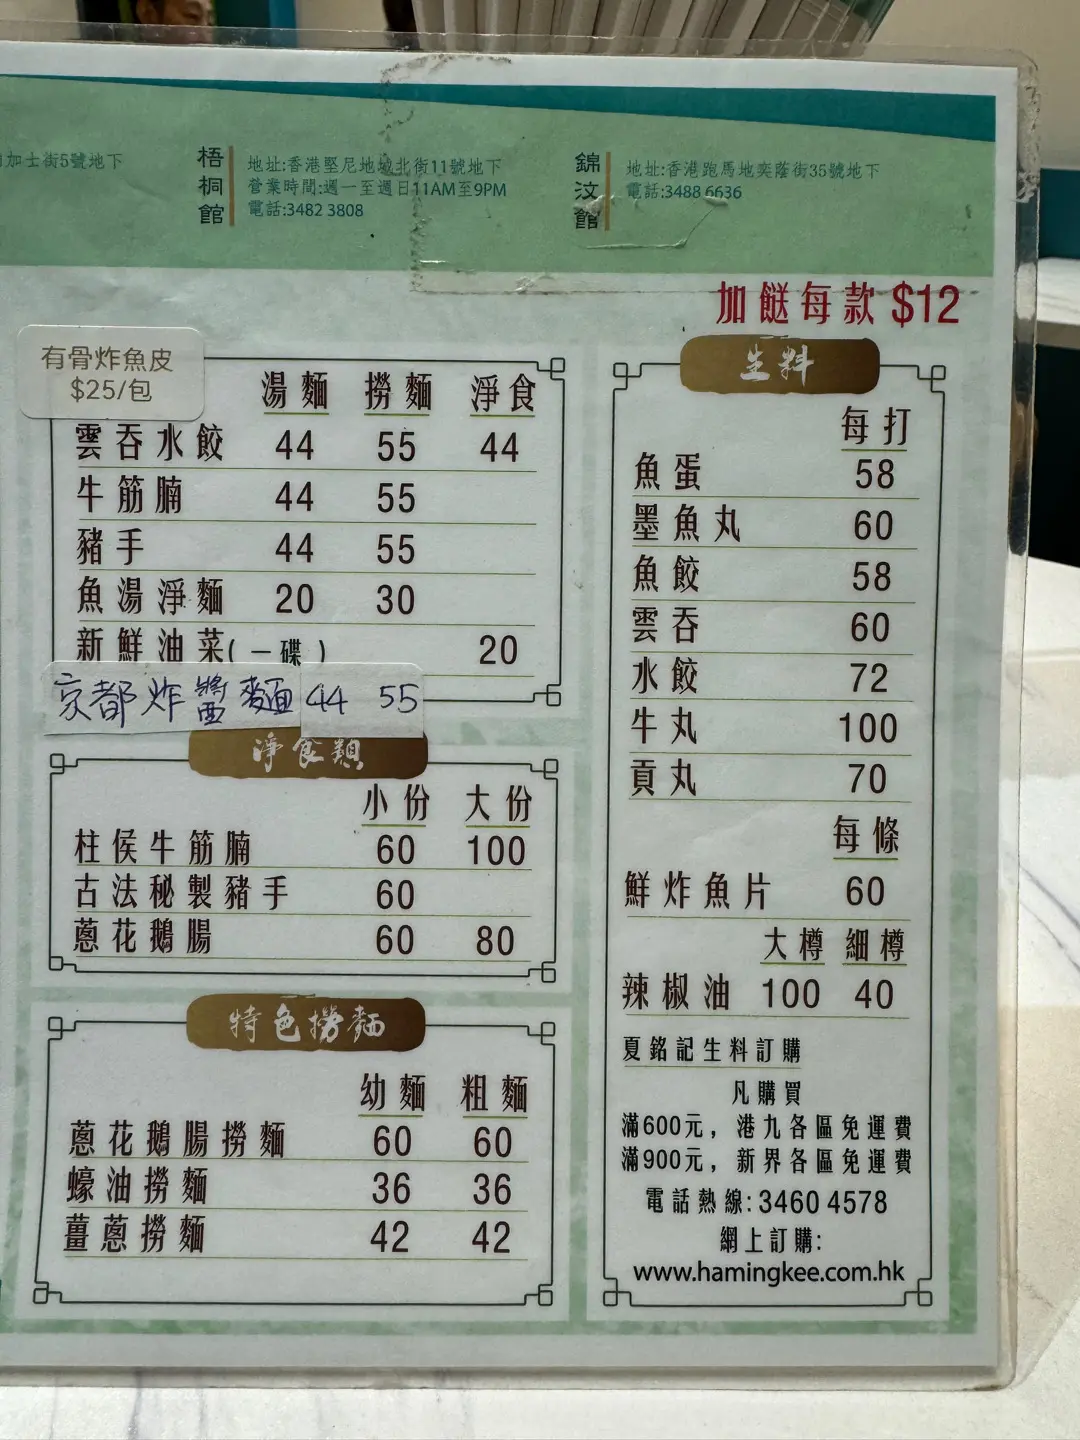 加士街5號地下
梧桐館
地址:香港堅尼地城北街11號地下
營業時間:週一至週日11AM至9PM
電話:3482 3808
錦汶館
地址:香港跑馬地奕蔭街35號地下
電話:3488 6636
加餸每款 $12
有骨炸魚皮
$25/包
湯麵 撈麵 淨食
雲吞水餃 44 55 44
牛筋腩 44 55
豬手 44 55
魚湯淨麵 20 30
新鮮油菜(一碟) 20
京都炸醬麵 44 55
淨食類
小份 大份
柱侯牛筋腩 60 100
古法秘製豬手 60
蔥花鵝腸 60 80
特色撈麵
幼麵 粗麵
蔥花鵝腸撈麵 60 60
蠔油撈麵 36 36
薑蔥撈麵 42 42
生料
每打
魚蛋 58
墨魚丸 60
魚餃 58
雲吞 60
水餃 72
牛丸 100
貢丸 70
每條
鮮炸魚片 60
大樽 細樽
辣椒油 100 40
夏銘記生料訂購
凡購買
滿600元，港九各區免運費
滿900元，新界各區免運費
電話熱線:3460 4578
網上訂購:
www.hamingkee.com.hk